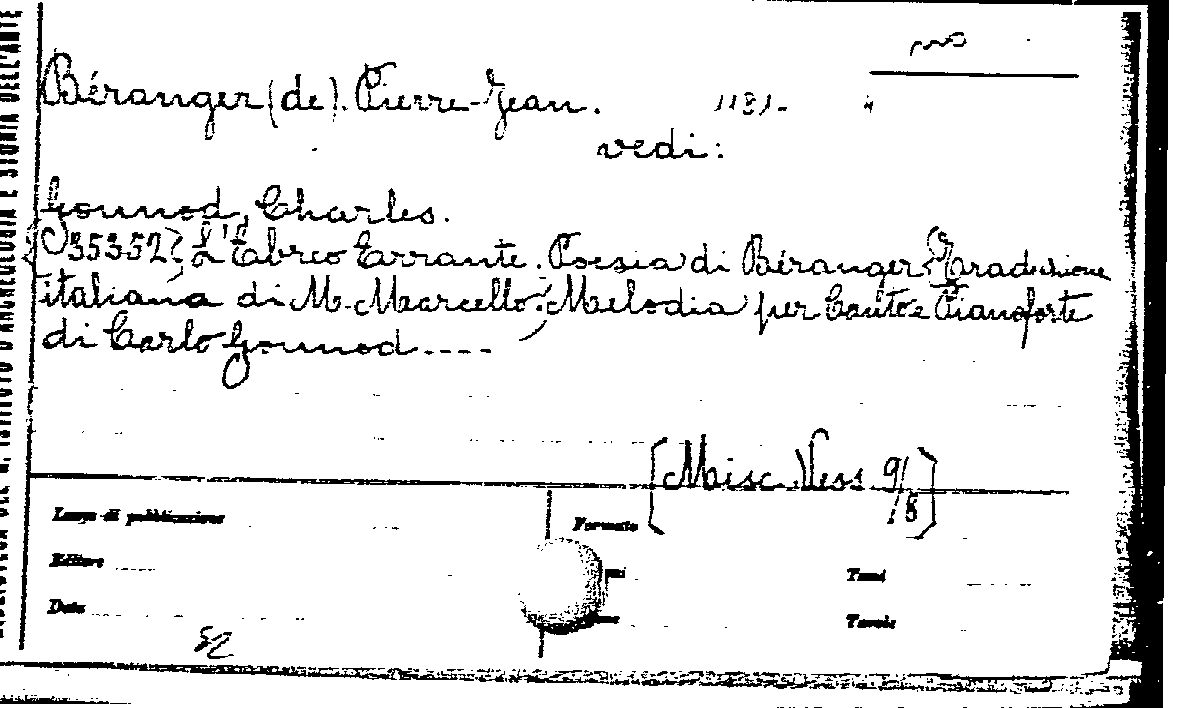 BIBLIOTECA DEL R. ISTITUTO D'ARCHEOLOGIA E STORIA DELL'ARTE
Béranger (de). Pierre-Jean.
vedi:
Gounod, Charles.
(35352) L'Ebreo Errante. Poesia di Béranger. Traduzione
italiana di M. Marcello. Melodia per Canto e Pianoforte
di Carlo Gounod----
[Misc. Vess. 9/8]
Luogo di pubblicazione
Formato
Editore
Tomi
Data
Tavole